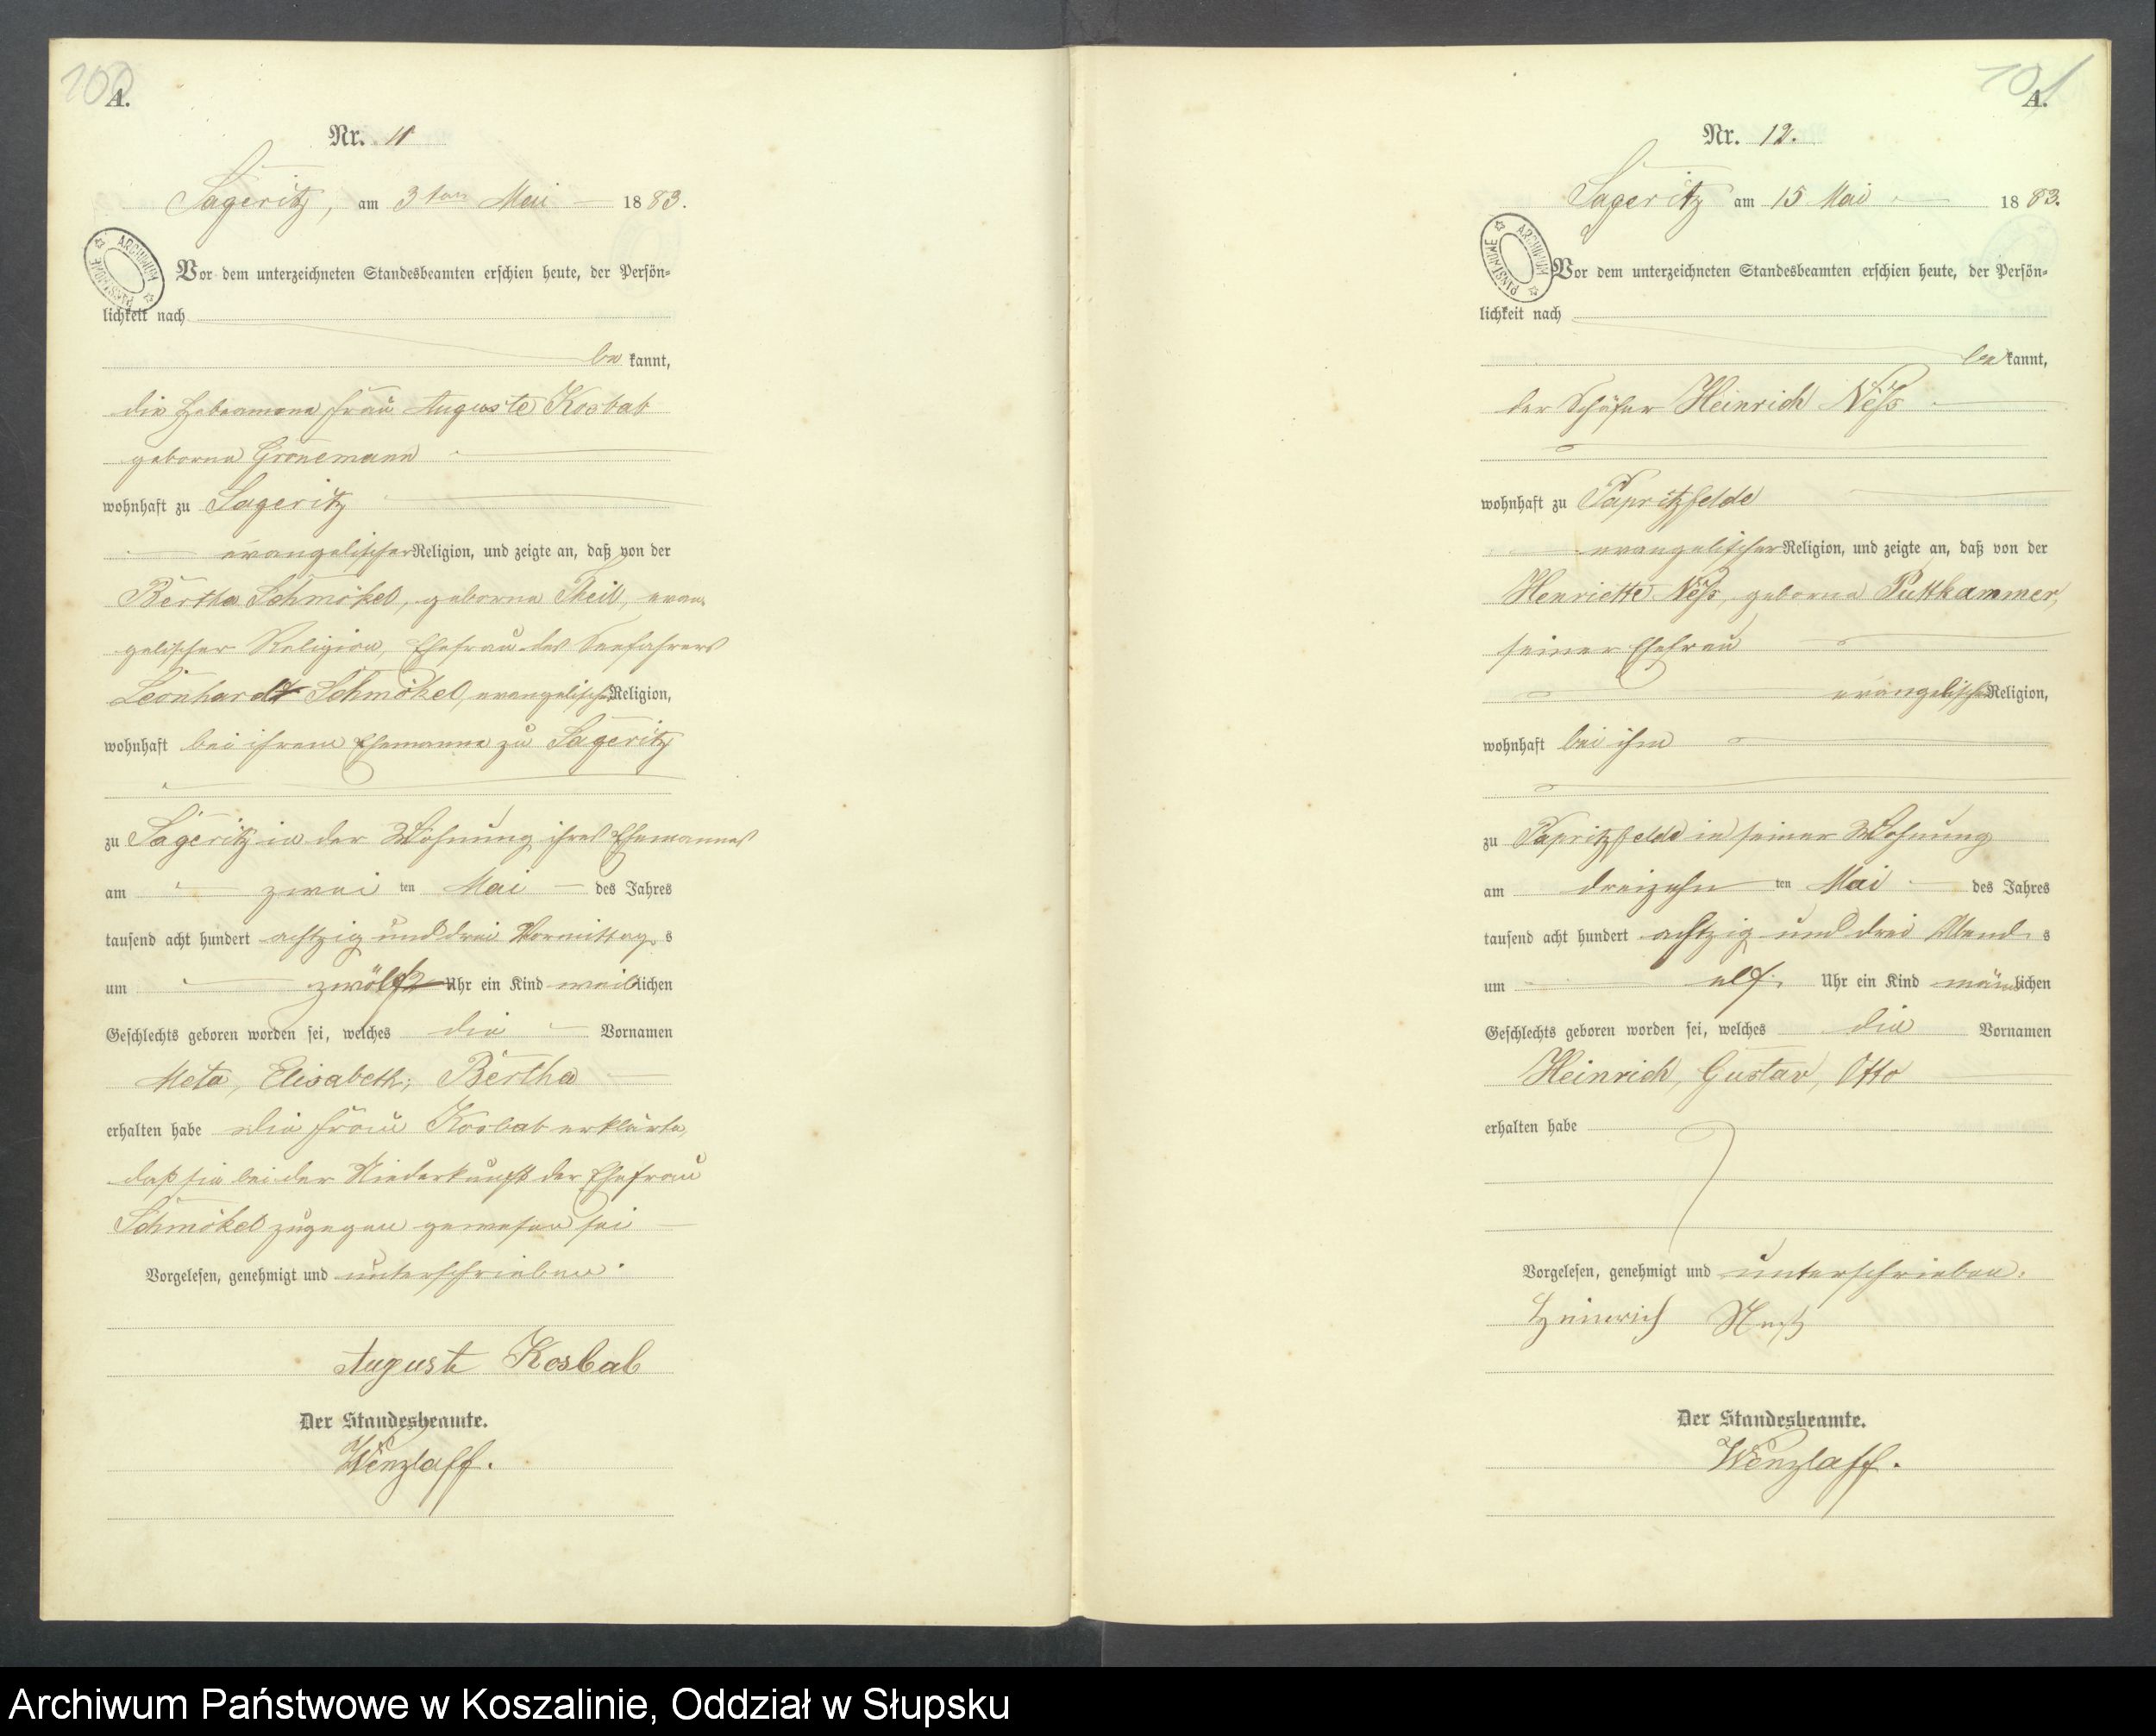 100
A.
Nr. 11
Sageritz, am 3ten Mai 1883.
ARCHIWUM PAŃSTWOWE
Vor dem unterzeichneten Standesbeamten erschien heute, der Persön=
lichkeit nach
bekannt,
die Hebeamme Frau Auguste Kosbab
geborne Grönemann
wohnhaft zu Sageritz
evangelischer Religion, und zeigte an, daß von der
Bertha Schmökel, geborne Theil, evan
gelischer Religion, Ehefrau des Seefahrers
Leonhardt Schmökel, evangelischer Religion,
wohnhaft bei ihrem Ehemanne zu Sageritz
zu Sageritz in der Wohnung ihres Ehemannes
am zwei ten Mai des Jahres
tausend acht hundert achtzig und drei Vormittags
um zwölf Uhr ein Kind weiblichen
Geschlechts geboren worden sei, welches die Vornamen
Meta, Elisabeth, Bertha
erhalten habe die Frau Kosbab erklärte,
daß sie bei der Niederkunft der Ehefrau
Schmökel zugegen gewesen sei
Vorgelesen, genehmigt und unterschrieben.
Auguste Kosbab
Der Standesbeamte.
Wenzlaff.
101
A.
Nr. 12.
Sageritz am 15 Mai 1883.
ARCHIWUM PAŃSTWOWE
Vor dem unterzeichneten Standesbeamten erschien heute, der Persön=
lichkeit nach
bekannt,
der Schäfer Heinrich Neß
wohnhaft zu Papritzfelde
evangelischer Religion, und zeigte an, daß von der
Henriette Neß, geborne Puttkammer,
seiner Ehefrau
evangelischer Religion,
wohnhaft bei ihm
zu Papritzfelde in seiner Wohnung
am dreizehn ten Mai des Jahres
tausend acht hundert achtzig und drei Abends
um elf Uhr ein Kind männlichen
Geschlechts geboren worden sei, welches die Vornamen
Heinrich, Gustav, Otto
erhalten habe
Vorgelesen, genehmigt und unterschrieben.
Heinrich Neß
Der Standesbeamte.
Wenzlaff.
Archiwum Państwowe w Koszalinie, Oddział w Słupsku